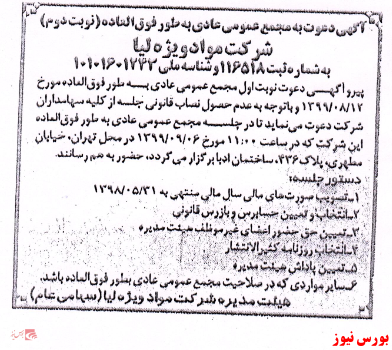 آگهی دعوت به مجمع عمومی عادی به طور فوق العاده (نوبت دوم)
شرکت مواد ویژه لیا
به شماره ثبت ۱۱۶۵۱۸ و شناسه ملی ۱۰۱۰۱۶۰۱۲۳۲
پیرو آگهی دعوت نوبت اول مجمع عمومی عادی به طور فوق العاده مورخ
۱۳۹۹/۰۸/۱۲ و باتوجه به عدم حصول نصاب قانونی جلسه از کلیه سهامداران
شرکت دعوت می نماید تا در جلسه مجمع عمومی عادی به طور فوق العاده
این شرکت که در ساعت ۱۱:۰۰ مورخ ۱۳۹۹/۰۹/۰۶ در محل تهران، خیابان
مطهری، پلاک ۴۳۶، ساختمان ادبا برگزار می گردد، حضور به هم رسانند.
دستور جلسه:
۱-تصویب صورت های مالی سال مالی منتهی به ۱۳۹۸/۰۵/۳۱
۲-انتخاب و تعیین حسابرس و بازرس قانونی
۳-تعیین حق حضور اعضای غیر موظف هیئت مدیره
۴-انتخاب روزنامه کثیر الانتشار
۵-تعیین پاداش هیئت مدیره
۶-سایر مواردی که در صلاحیت مجمع عمومی عادی بطور فوق العاده باشد.
هیئت مدیره شرکت مواد ویژه لیا (سهامی عام)
بورس نیوز